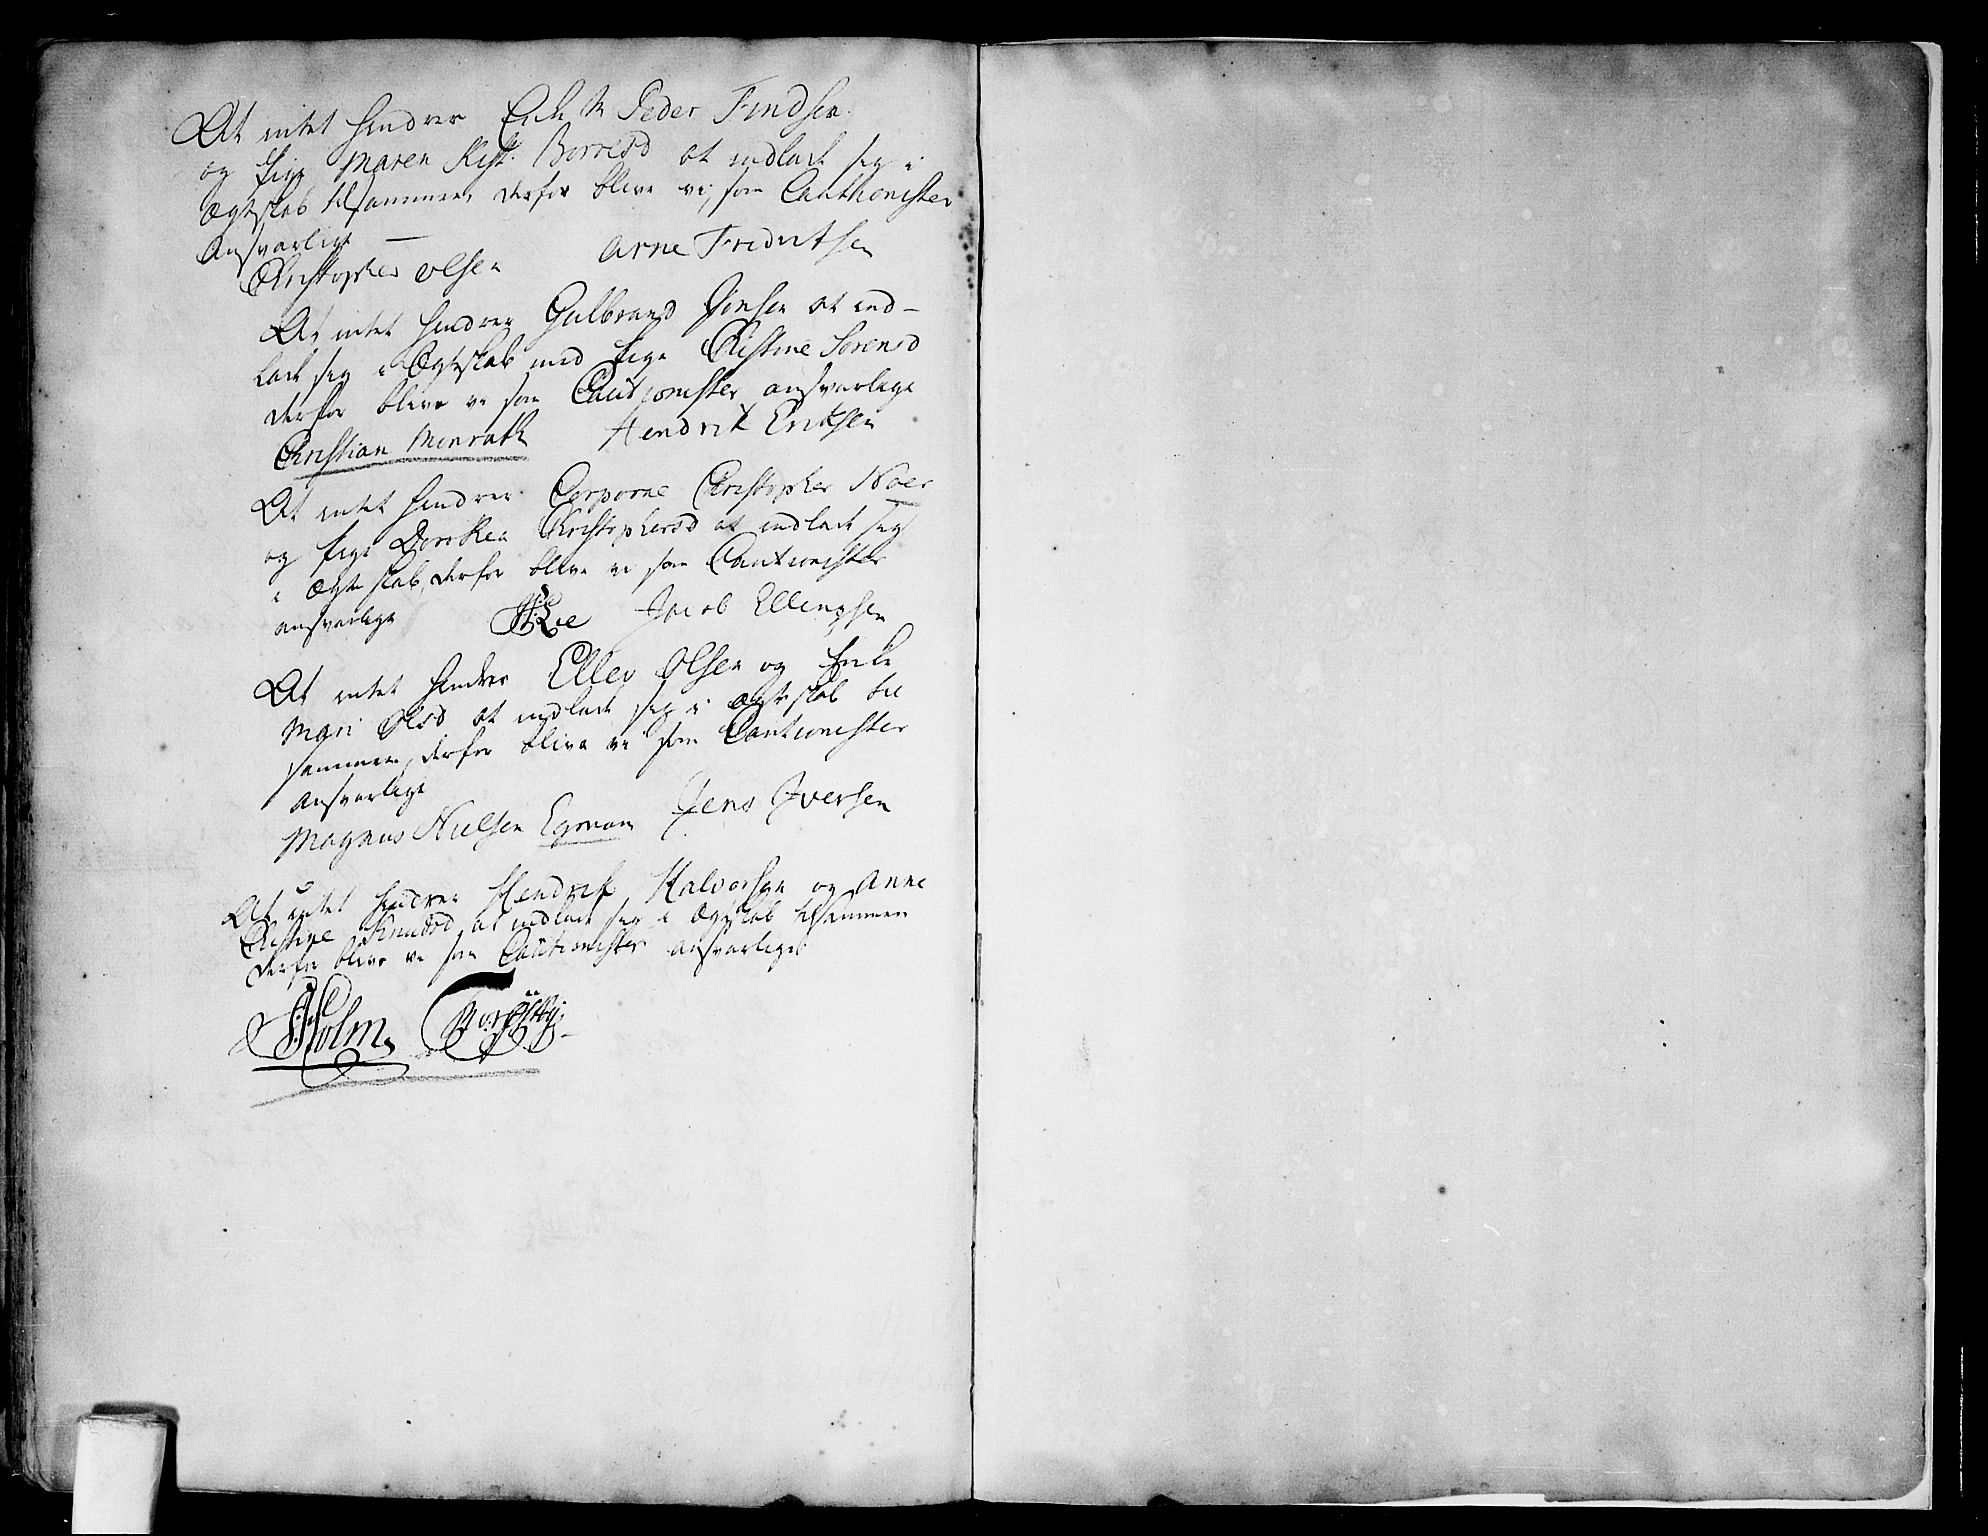 At intet hindrer Enke M Peder Findsen
og Pige Maren Kist. Borresd at indlade sig i
Ægteskab tilsammen, derfor blive vi, som Cauthonister
Ansvarlige —
Christopher Olsen Arne Fredriksen
At intet hindrer Gulbrand Jonsen at ind-
lade sig i Ægteskab med Pige Christine Sørensd
derfor blive vi som Cautionister ansvarlige
Christian Monrath Hendrik Eriksen
At intet hindrer Christopher Noer
og Pige Dorthea Christophersd at indlade sig
i Ægteskab, derfor blive vi som Cautionister
ansvarlige Jacob Ellingsen
At intet hindrer Ellev Olsen og Enke
Mari Olsd at indlade sig i Ægteskab til
sammen, derfor blive vi som Cautionister
ansvarlige
Magnus Nielsen Egman Jens Iversen
At intet hindrer Hendrik Halvorsen og Anne
Christine Knudsd at indlade sig i Ægteskab tilsammen
derfor blive vi som Cautionister ansvarlige
Holm